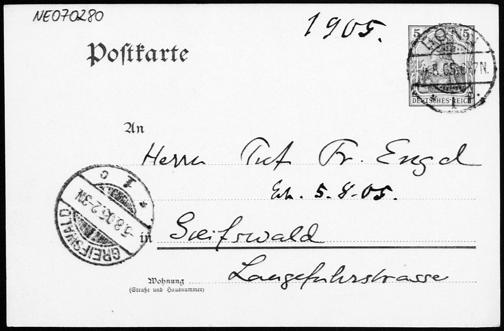 NE070280
1905.
Postkarte
5 5
BONN
4.8.05.6-7N.
DEUTSCHES REICH
* 1 f.
An
Herrn Prof. Fr. Engel
Erh. 5.8.05.
* 1 c
-5.8.05.2-3N.
GREIFSWALD
in Greifswald
Langefuhrstrasse
Wohnung
(Straße und Hausnummer)